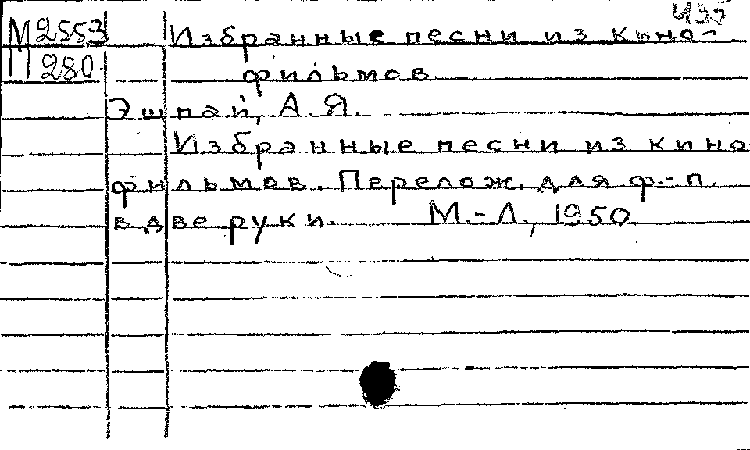 М2553 Избранные песни из кино-
П 280 фильмов
Эшпай, А.Я.
Избранные песни из кино
фильмов. Перелож. для ф.-п.
в две руки. М.-Л., 1950